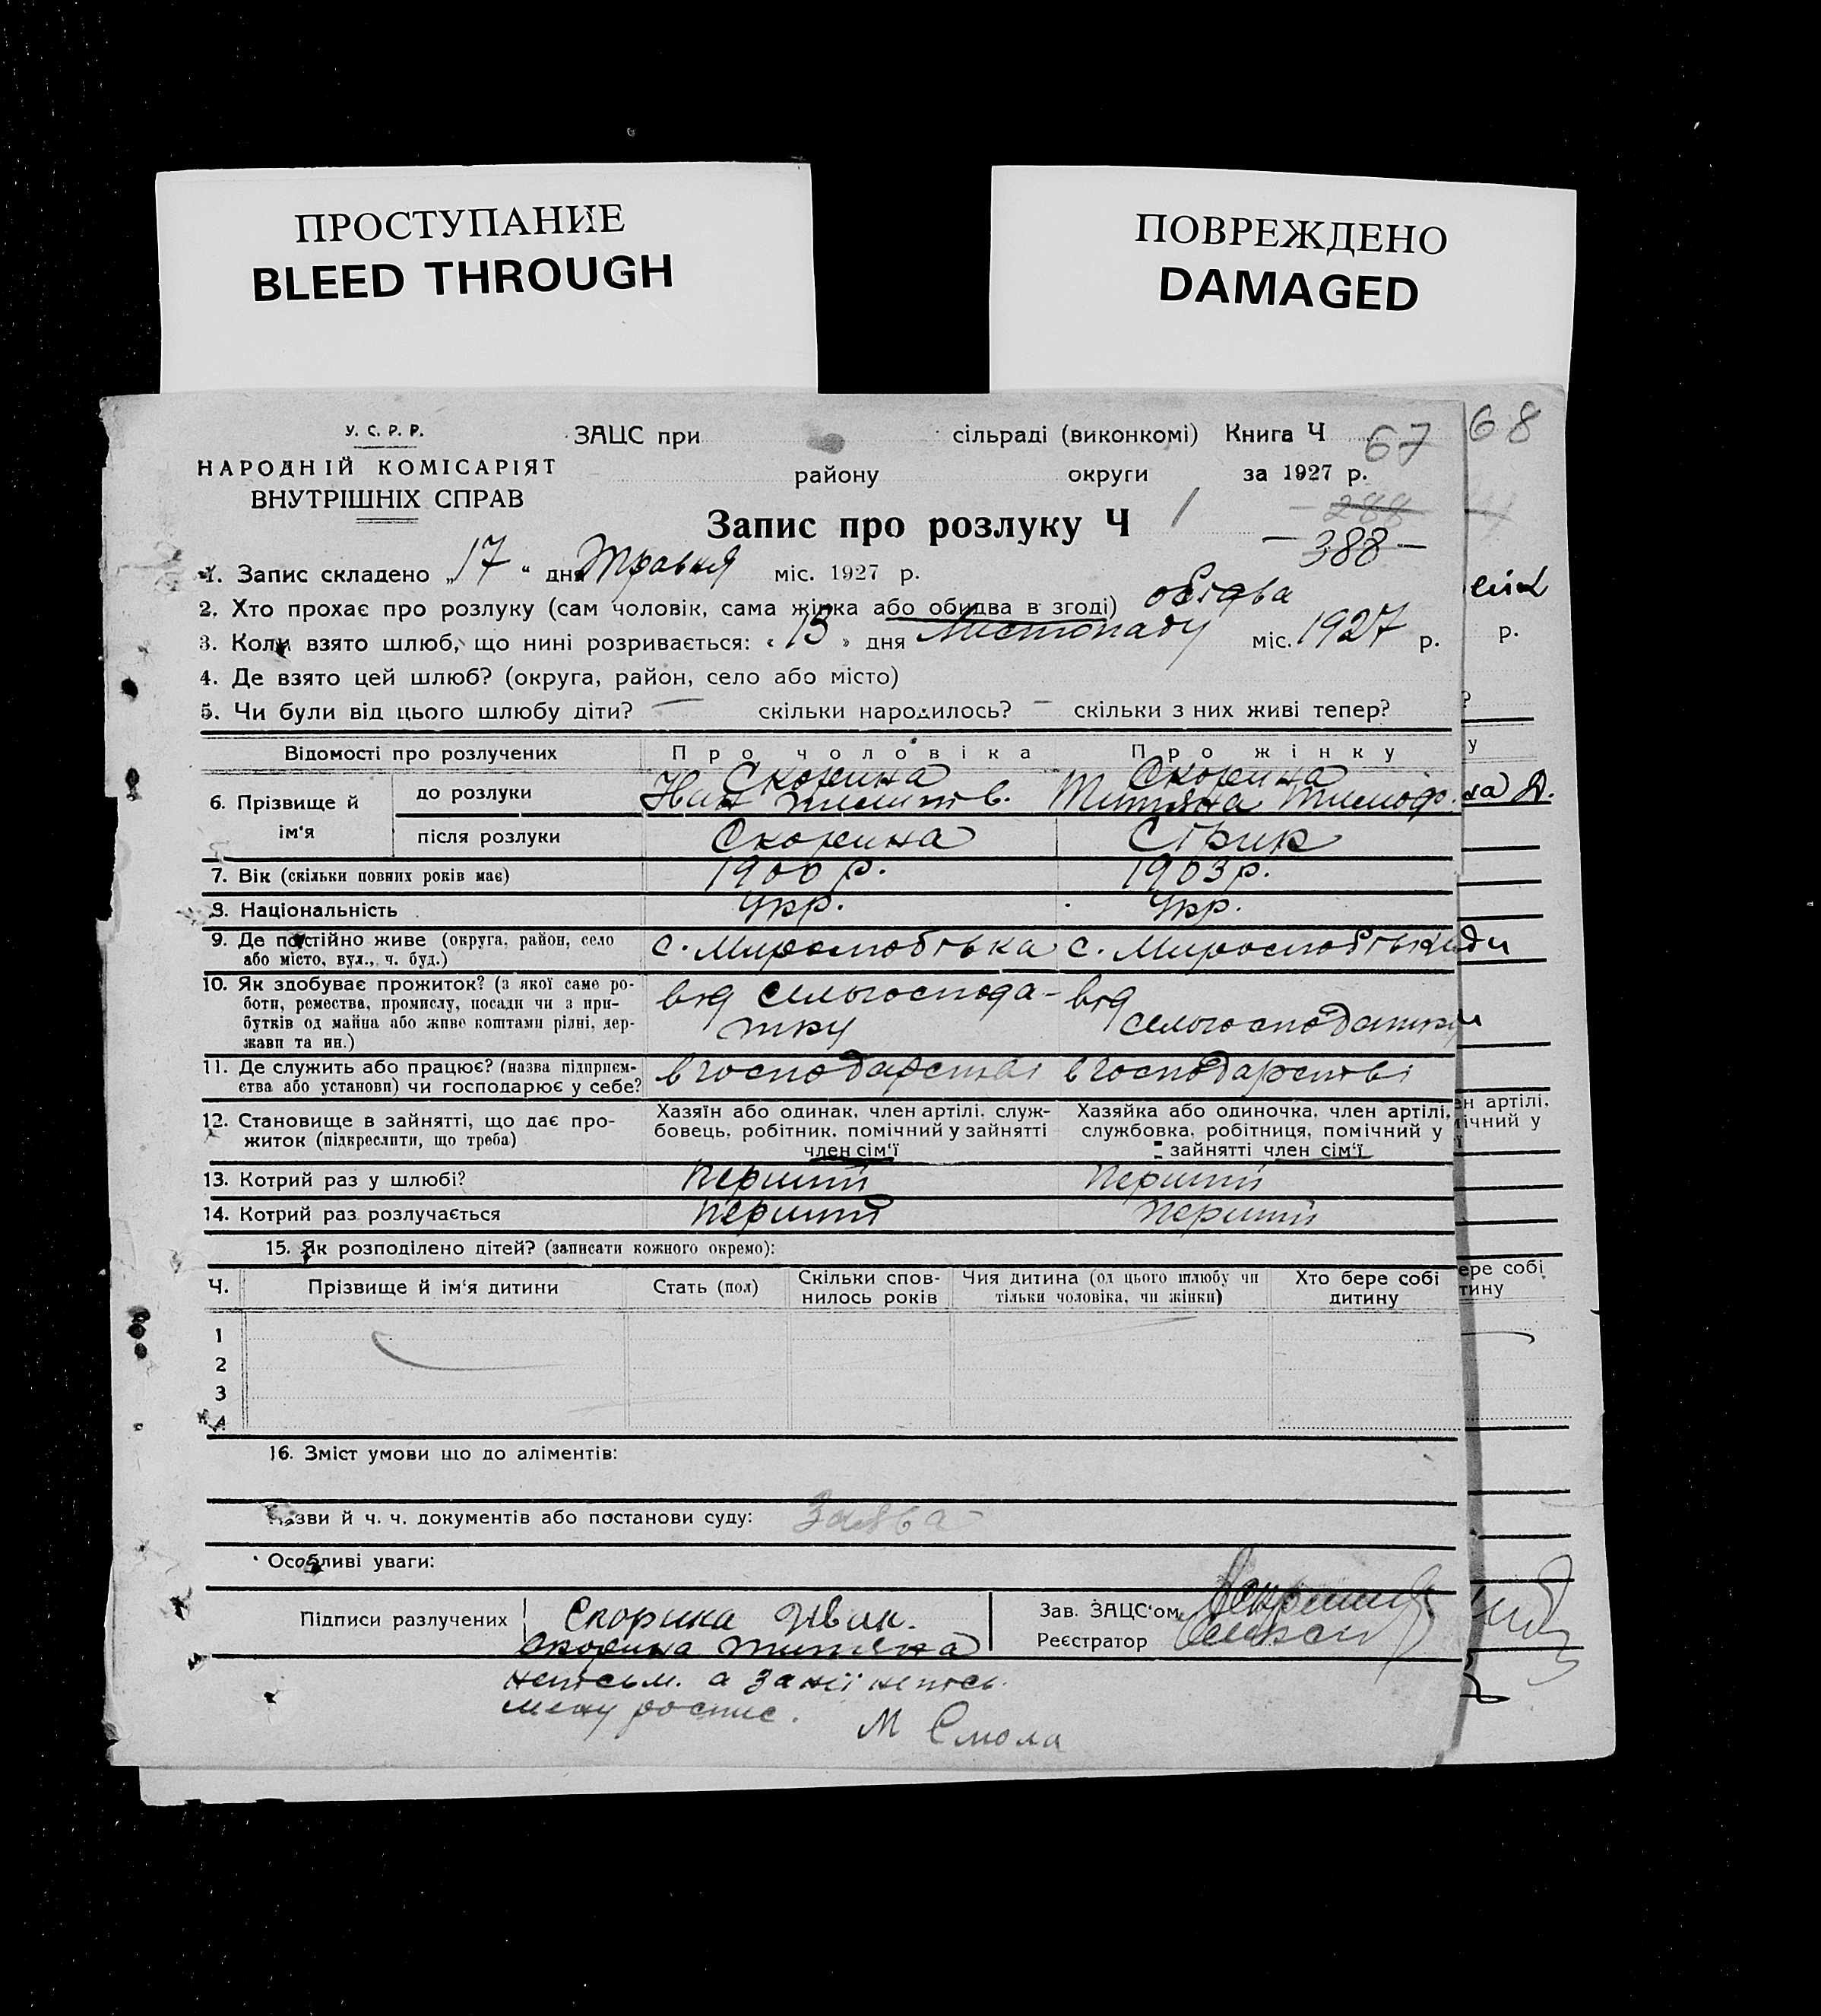 ПРОСТУПАНИЕ
BLEED THROUGH
ПОВРЕЖДЕНО
DAMAGED
У. С. Р. Р.
НАРОДНІЙ КОМІСАРІЯТ
ВНУТРІШНІХ СПРАВ
ЗАЦС при сільраді (виконкомі) Книга Ч 67
68
району округи за 1927 р.
288
Запис про розлуку Ч 1
— 388 —
1. Запис складено „ 17 “ дня Травня міс. 1927 р.
2. Хто прохає про розлуку (сам чоловік, сама жінка або обидва в згоді) обідва
3. Коли взято шлюб, що нині розривається: « 15 » дня Листопаду міс. 1927 р.
р.
4. Де взято цей шлюб? (округа, район, село або місто)
5. Чи були від цього шлюбу діти? — скільки народилось? — скільки з них живі тепер?
Відомості про розлучених Про чоловіка Про жінку
6. Прізвище й ім‘я
до розлуки Скорина Скорина
Іван Тимотів. Титяна Тимоф.
на Д.
після розлуки Скорина Сірик
7. Вік (скільки повних років має) 1900 р. 1903 р.
8. Національність Укр. Укр.
9. Де постійно живе (округа, район, село
або місто, вул., ч. буд.) с. Миролюбівка с. Миролюбівка
10. Як здобуває прожиток? (з якої саме ро-
боти, ремества, промислу, посади чи з при-
бутків од майна або живе коштами рідні, дер-
жави та ин.)
від сельгоспода-
тку
від
сельгосподатку
11. Де служить або працює? (назва підприєм-
ства або установи) чи господарює у себе? в господарстві в господарстві
12. Становище в зайнятті, що дає про-
житок (підкреслити, що треба)
Хазяїн або одинак, член артілі, служ-
бовець, робітник, помічний у зайнятті
член сім‘ї
Хазяйка або одиночка, член артілі,
службовка, робітниця, помічний у
зайнятті член сім‘ї
ен артілі,
мічний у
13. Котрий раз у шлюбі? Перший Перший
14. Котрий раз розлучається Перший Перший
15. Як розподілено дітей? (записати кожного окремо):
Ч. Прізвище й ім‘я дитини Стать (пол) Скільки спов-
нилось років Чия дитина (од цього шлюбу чи
тільки чоловіка, чи жінки) Хто бере собі
дитину
ере собі
тину
1
2
3
4
16. Зміст умови що до аліментів:
Назви й ч. ч. документів або постанови суду: Заява
Особливі уваги:
Підписи разлучених Скорина Иван.
Скорина Титяна
Зав. ЗАЦС‘ом
Реєстратор
неписьм. а за неї непись
мену роспис.
М Смола